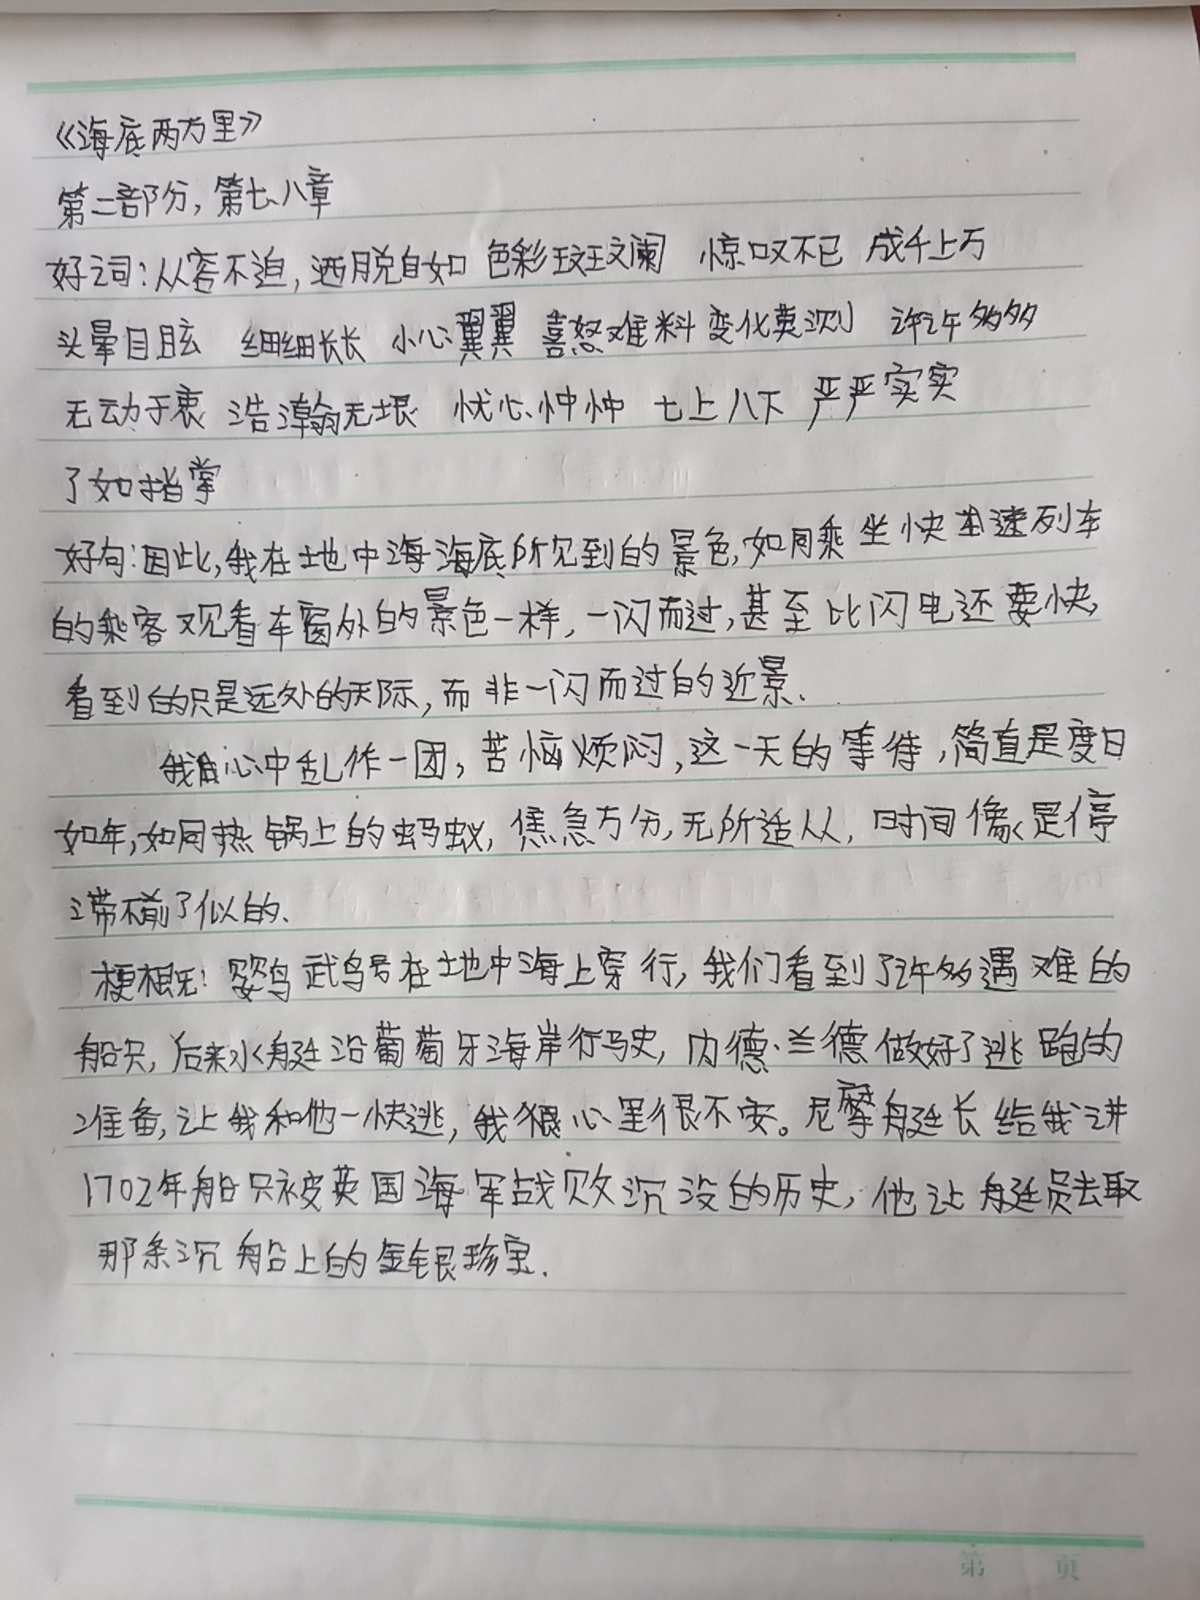 《海底两万里》
第二部分，第七、八章
好词：从容不迫，洒脱自如 色彩斑斓 惊叹不已 成千上万
头晕目眩 细细长长 小心翼翼 喜怒难料 变化莫测 许许多多
无动于衷 浩瀚无垠 忧心忡忡 七上八下 严严实实
了如指掌
好句：因此，我在地中海海底所见到的景色，如同乘坐快速列车
的乘客观看车窗外的景色一样，一闪而过，甚至比闪电还要快，
看到的只是远处的天际，而非一闪而过的近景.
我心中乱作一团，苦恼烦闷，这一天的等待，简直是度日
如年，如同热锅上的蚂蚁，焦急万分，无所适从，时间像是停
滞不前了似的.
梗概：鹦鹉号在地中海上穿行，我们看到了许多遇难的
船只，后来水艇沿葡萄牙海岸行驶，内德·兰德做好了逃跑的
准备，让我和他一快逃，我狠心里很不安。尼摩艇长给我讲
1702年船只被英国海军战败沉没的历史，他让艇员去取
那条沉船上的金银珍宝.
第 页